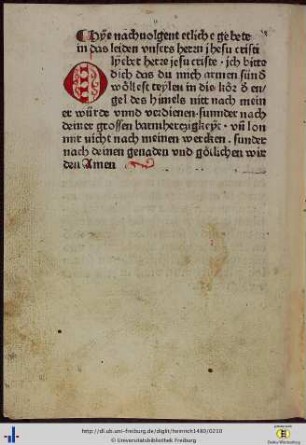 Hye nachuolgent etliche gebete
in das leiden vnsers herrn jhesu cristi
O lyeber herre jesu criste · ich bitte
dich das du mich armen sünd
wöllest teylen in die kör d̄ en/
gel des himels nit nach mein
er würde vnnd verdienen · sunnder nach
deiner grossen barmhertzigkeyt · vn̄ lon
mir nicht nach meinen wercken · sunder
nach deinen genaden vnd götlichen wir
den Amen
http://dl.ub.uni-freiburg.de/diglit/heinrich1483/0210
© Universitätsbibliothek Freiburg